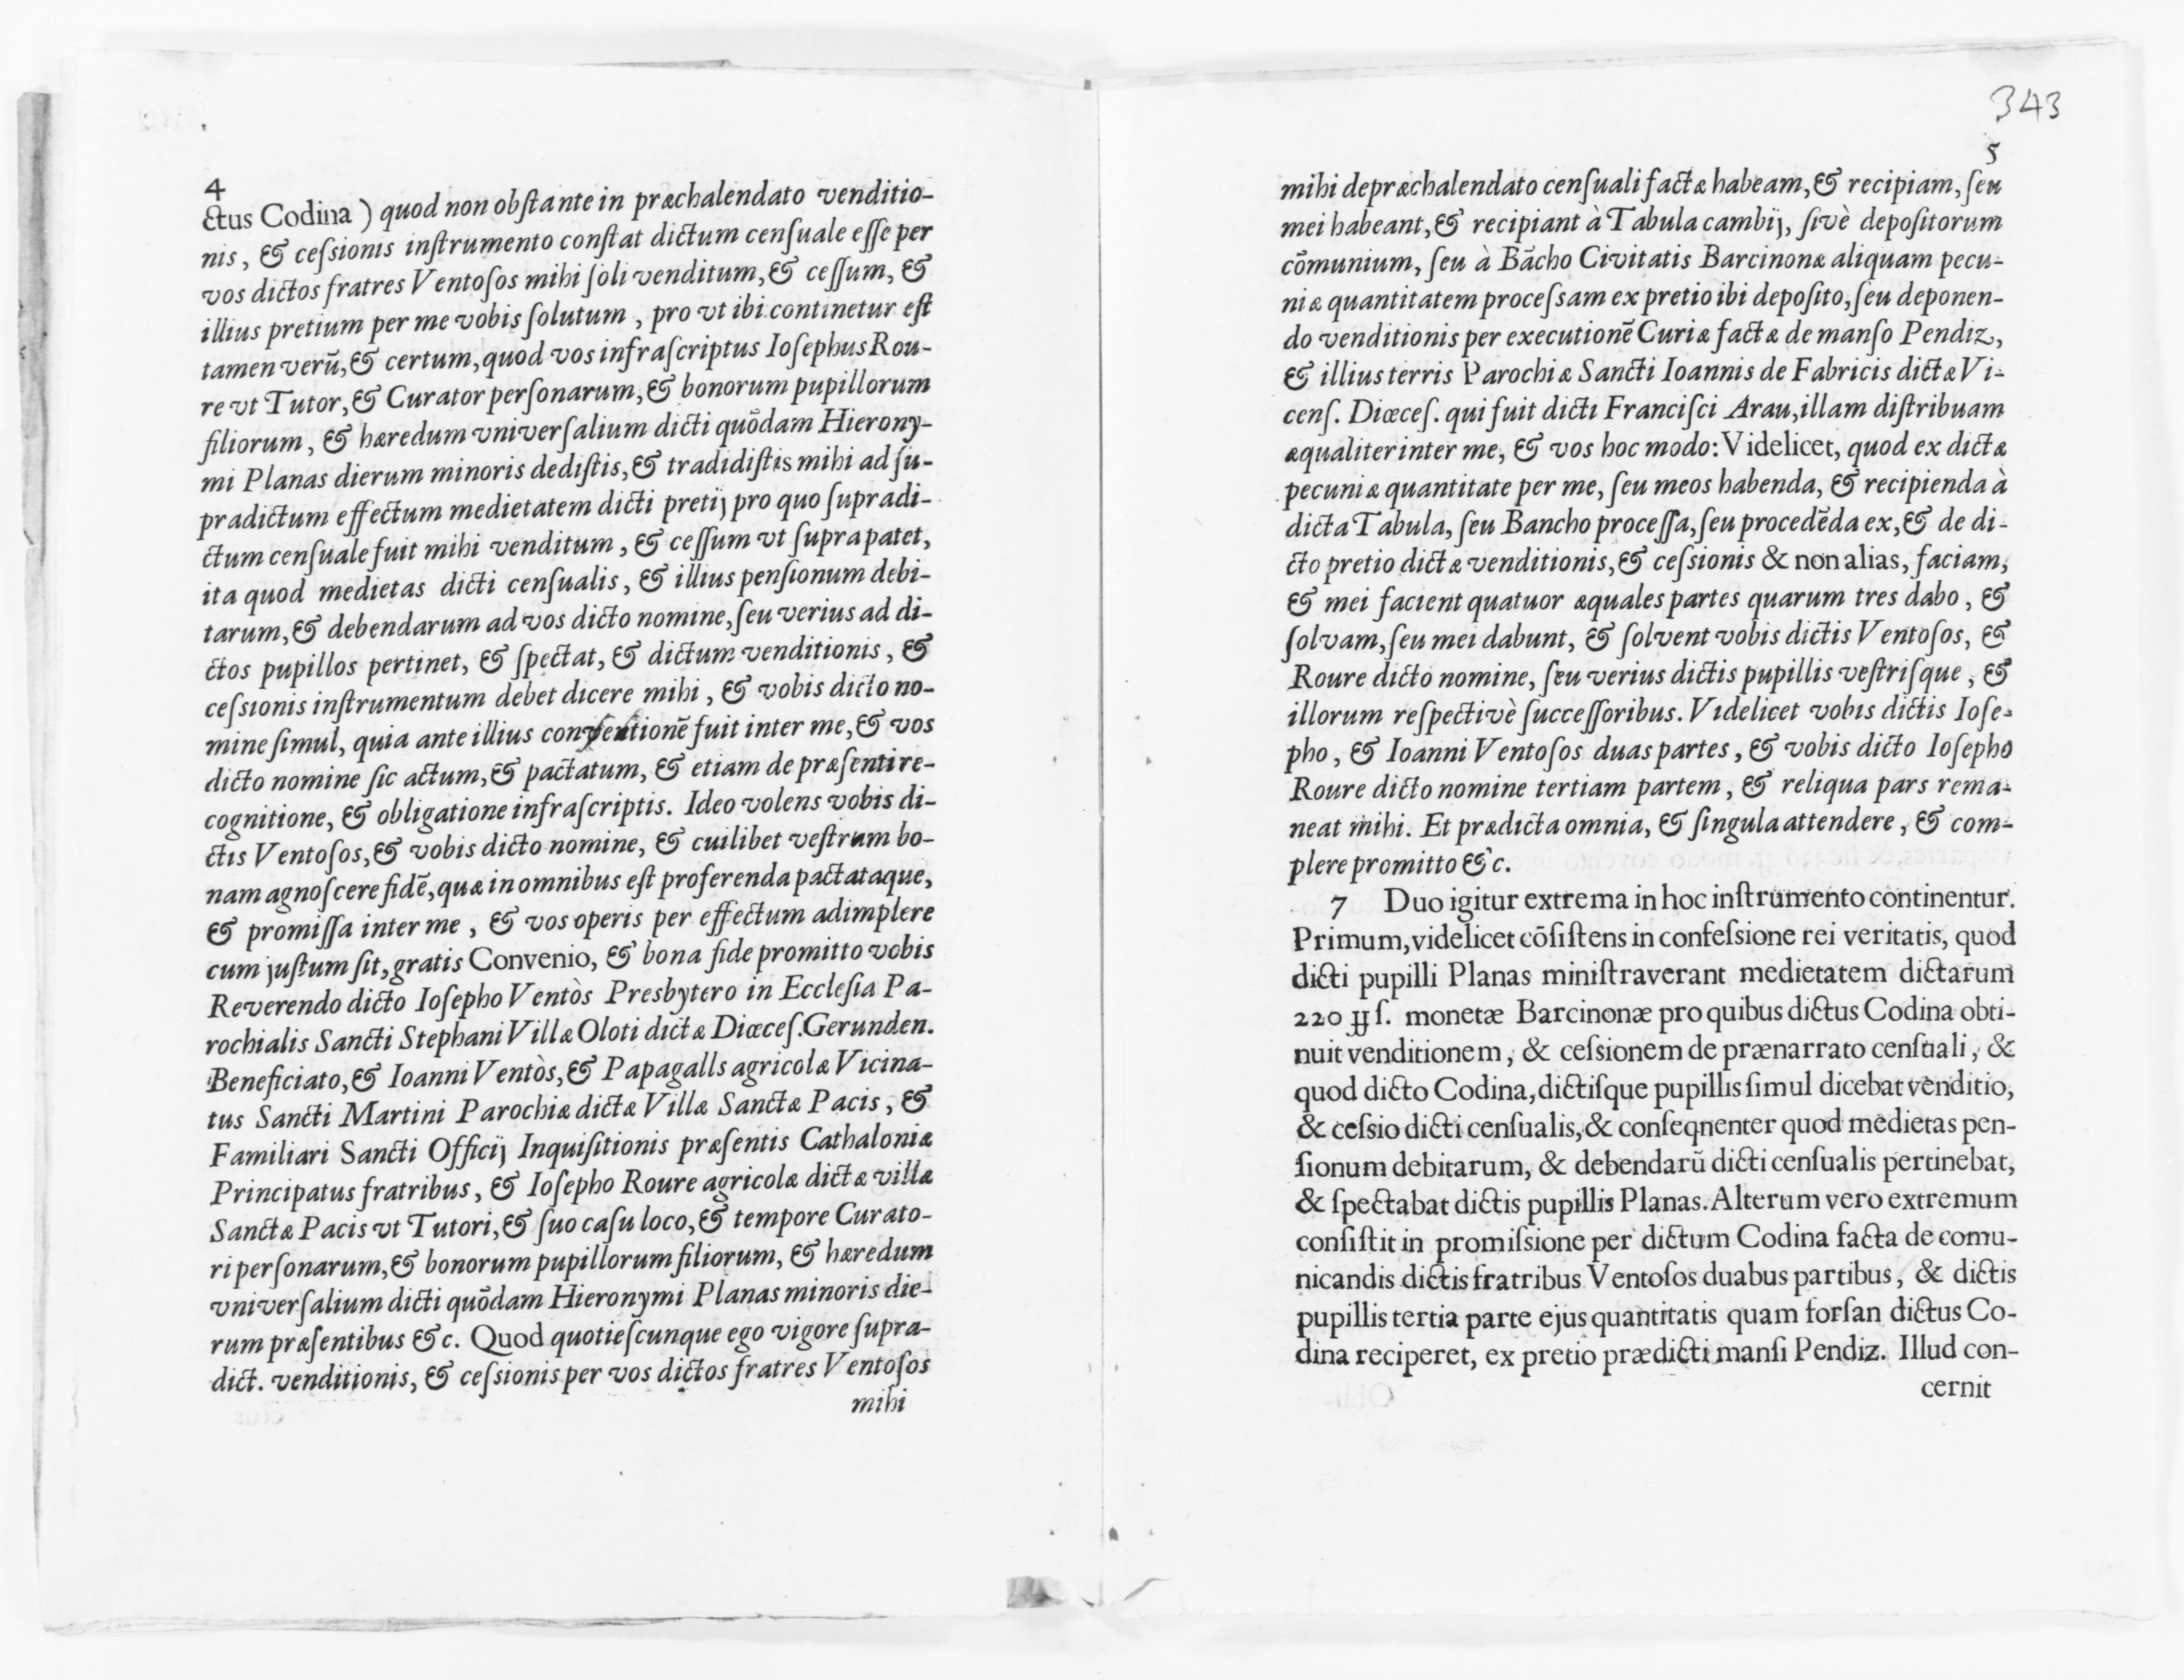 4
ctus Codina ) quod non obſtante in præchalendato venditio-
nis, & ceſsionis inſtrumento conſtat dictum cenſuale eſſe per
vos dictos fratres Ventoſos mihi ſoli venditum, & ceſſum, &
illius pretium per me vobis ſolutum, pro vt ibi continetur eſt
tamen verũ, & certum, quod vos infraſcriptus Ioſephus Rou-
re vt Tutor, & Curator perſonarum, & bonorum pupillorum
filiorum, & hæredum vniverſalium dicti quõdam Hierony-
mi Planas dierum minoris dediſtis, & tradidiſtis mihi ad ſu-
pradictum effectum medietatem dicti pretij pro quo ſupradi-
ctum cenſuale fuit mihi venditum, & ceſſum vt ſupra patet,
ita quod medietas dicti cenſualis, & illius penſionum debi-
tarum, & debendarum ad vos dicto nomine, ſeu verius ad di-
ctos pupillos pertinet, & ſpectat, & dictum venditionis, &
ceſsionis inſtrumentum debet dicere mihi, & vobis dicto no-
mine ſimul, quia ante illius confectionẽ fuit inter me, & vos
dicto nomine ſic actum, & pactatum, & etiam de præſenti re-
cognitione, & obligatione infraſcriptis. Ideo volens vobis di-
ctis Ventoſos, & vobis dicto nomine, & cuilibet veſtrum bo-
nam agnoſcere fidẽ, quæ in omnibus eſt proferenda pactataque,
& promiſſa inter me, & vos operis per effectum adimplere
cum juſtum ſit, gratis Convenio, & bona fide promitto vobis
Reverendo dicto Ioſepho Ventòs Presbytero in Eccleſia Pa-
rochialis Sancti Stephani Villæ Oloti dictæ Diœceſ. Gerunden.
Beneficiato, & Ioanni Ventòs, & Papagalls agricolæ Vicina-
tus Sancti Martini Parochiæ dictæ Villæ Sanctæ Pacis, &
Familiari Sancti Officij Inquiſitionis præſentis Cathaloniæ
Principatus fratribus, & Ioſepho Roure agricolæ dictæ villæ
Sanctæ Pacis vt Tutori, & ſuo caſu loco, & tempore Curato-
ri perſonarum, & bonorum pupillorum filiorum, & hæredum
vniverſalium dicti quõdam Hieronymi Planas minoris die-
rum præſentibus &c. Quod quotieſcunque ego vigore ſupra-
dict. venditionis, & ceſsionis per vos dictos fratres Ventoſos
mihi
343
5
mihi de præchalendato cenſuali factæ habeam, & recipiam, ſeu
mei habeant, & recipiant à Tabula cambij, ſivè depoſitorum
cõmunium, ſeu à Bãcho Civitatis Barcinonæ aliquam pecu-
niæ quantitatem proceſsam ex pretio ibi depoſito, ſeu deponen-
do venditionis per executionẽ Curiæ factæ de manſo Pendiz,
& illius terris Parochiæ Sancti Ioannis de Fabricis dictæ Vi-
cenſ. Diœceſ. qui fuit dicti Franciſci Arau, illam diſtribuam
æqualiter inter me, & vos hoc modo: Videlicet, quod ex dictæ
pecuniæ quantitate per me, ſeu meos habenda, & recipienda à
dicta Tabula, ſeu Bancho proceſſa, ſeu procedẽda ex, & de di-
cto pretio dictæ venditionis, & ceſsionis & non alias, faciam,
& mei facient quatuor æquales partes quarum tres dabo, &
ſolvam, ſeu mei dabunt, & ſolvent vobis dictis Ventoſos, &
Roure dicto nomine, ſeu verius dictis pupillis veſtriſque, &
illorum reſpectivè ſucceſſoribus. Videlicet vobis dictis Ioſe-
pho, & Ioanni Ventoſos duas partes, & vobis dicto Ioſepho
Roure dicto nomine tertiam partem, & reliqua pars rema-
neat mihi. Et prædicta omnia, & ſingula attendere, & com-
plere promitto &c.
7 Duo igitur extrema in hoc inſtrumento continentur.
Primum, videlicet cõſiſtens in confeſsione rei veritatis, quod
dicti pupilli Planas miniſtraverant medietatem dictarum
220 ſ. monetæ Barcinonæ pro quibus dictus Codina obti-
nuit venditionem, & ceſsionem de prænarrato cenſuali, &
quod dicto Codina, dictiſque pupillis ſimul dicebat venditio,
& ceſsio dicti cenſualis, & conſeqnenter quod medietas pen-
ſionum debitarum, & debendarũ dicti cenſualis pertinebat,
& ſpectabat dictis pupillis Planas. Alterum vero extremum
conſiſtit in promiſsione per dictum Codina facta de comu-
nicandis dictis fratribus Ventoſos duabus partibus, & dictis
pupillis tertia parte ejus quantitatis quam forſan dictus Co-
dina reciperet, ex pretio prædicti manſi Pendiz. Illud con-
cernit